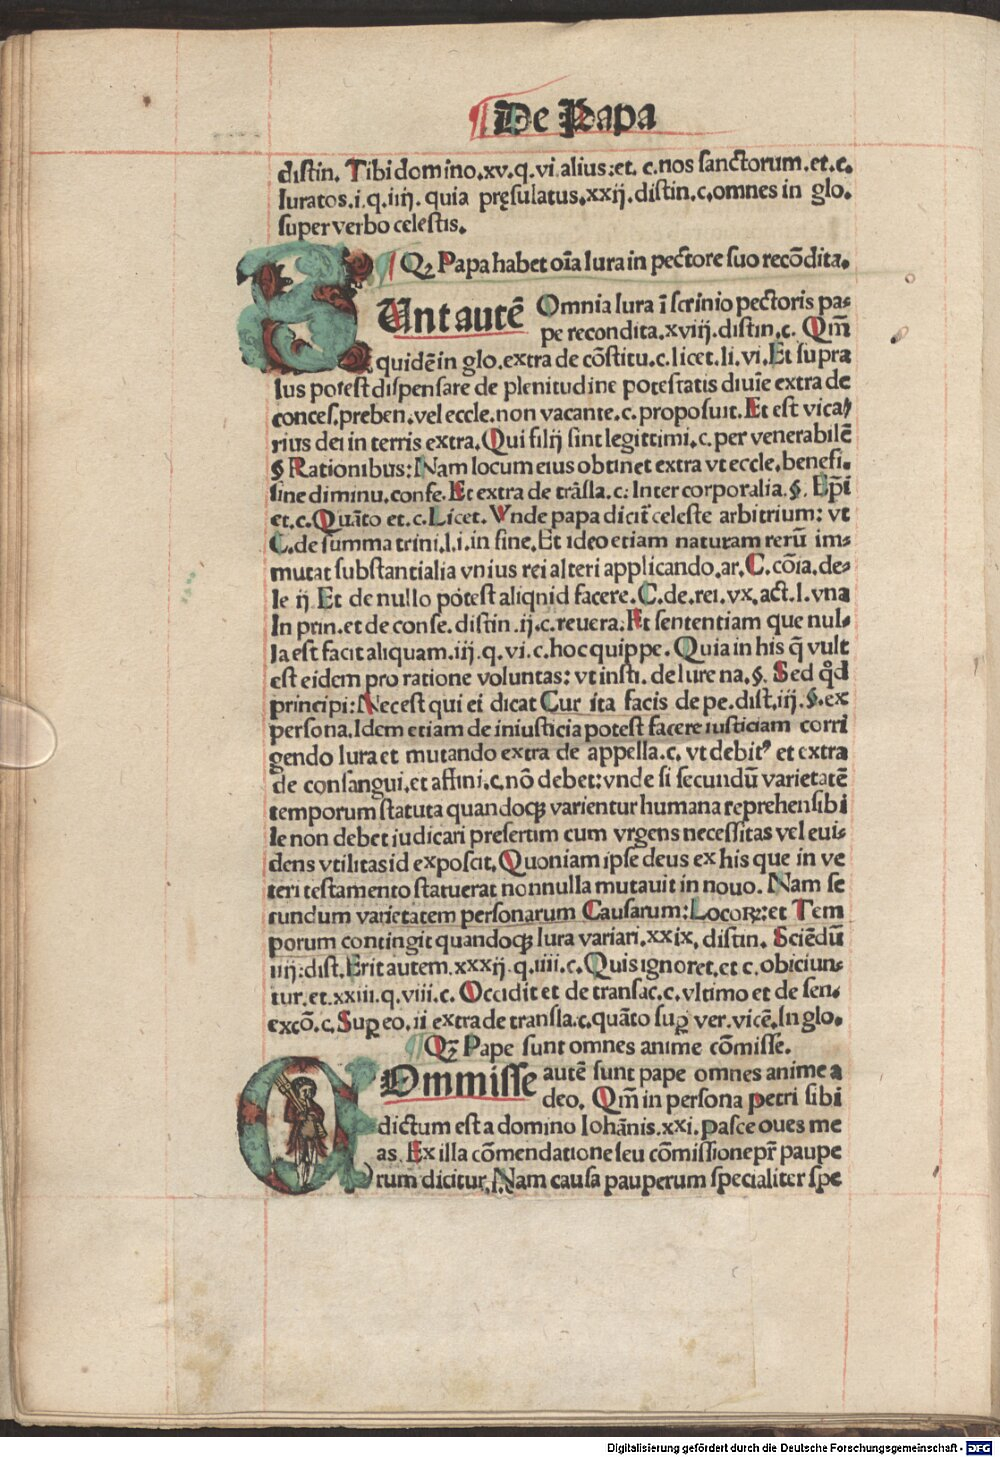 ¶ De Papa
distin. Tibi domino.xv.q.vi.alius:et. c.nos sanctorum.et.c.
Iuratos.i.q.iiij. quia pręsulatus.xxij.distin.c.omnes in glo.
super verbo celestis.
¶ Qꝫ Papa habet oīa Iura in pectore suo recōdita.
SUnt autē Omnia Iura ī scrinio pectoris pa-
pe recondita.xviij.distin.c. Qm̄
quidē in glo.extra de cōstitu.c.licet.li.vi.Et supra
Ius potest dispensare de plenitudine potestatis diuīe extra de
conces.preben.vel eccle.non vacante.c.proposuit.Et est vica-
rius dei in terris extra.Qui filij sint legittimi.c.per venerabilē
§ Rationibus:Nam locum eius obtinet extra vt eccle.benefi.
sine diminu.confe.Et extra de trāsla.c.Inter corporalia.§. Ep̄i
et.c.Quāto et.c.Licet.Vnde papa dicit̄ celeste arbitrium: vt
C.de summa trini.l.i.in fine.Et ideo etiam naturam rerū im-
mutat substantialia vnius rei alteri applicando.ar.C.cōia.de-
le ij Et de nullo potest aliqnid facere.C.de.rei.vx.act.l.vna
In prin.et de conse.distin.ij.c.reuera.Et sententiam que nul-
la est facit aliquam.iij.q.vi.c.hoc quippe.Quia in his q̄ vult
est eidem pro ratione voluntas: vt insti.de Iure na.§. Sed qd̄
principi:Nec est qui ei dicat Cur ita facis de pe.dist.iij.§.ex
persona.Idem etiam de iniusticia potest facere iusticiam corri
gendo Iura et mutando extra de appella.c. vt debitꝰ et extra
de consangui.et affini.c.nō debet:vnde si secundū varietatē
temporum statuta quandoqꝫ varientur humana reprehensibi
le non debet iudicari presertim cum vrgens necessitas vel eui-
dens vtilitas id exposcit.Quoniam ipse deus ex his que in ve
teri testamento statuerat nonnulla mutauit in nouo. Nam se
cundum varietatem personarum Causarum:Locoꝝ:et Tem
porum contingit quandoqꝫ Iura variari.xxix. distin. Sciēdū
iiij:dist.Erit autem.xxxij.q.iiii.c.Quis ignoret.et c.obiciun-
tur.et.xxiii.q.viii.c. Occidit et de transac.c.vltimo et de sen.
excō.c.Suꝑ eo.ii extra de transla.c.quāto suꝑ ver.vicē.In glo.
¶ Qꝫ Pape sunt omnes anime cōmisse.
COmmisse autē sunt pape omnes anime a
deo. Qm̄ in persona petri sibi
dictum est a domino Iohānis.xxi.pasce oues me
as. Ex illa cōmendatione seu cōmissione pr̄ paupe
rum dicitur.Nam causa pauperum specialiter spe
Digitalisierung gefördert durch die Deutsche Forschungsgemeinschaft - DFG